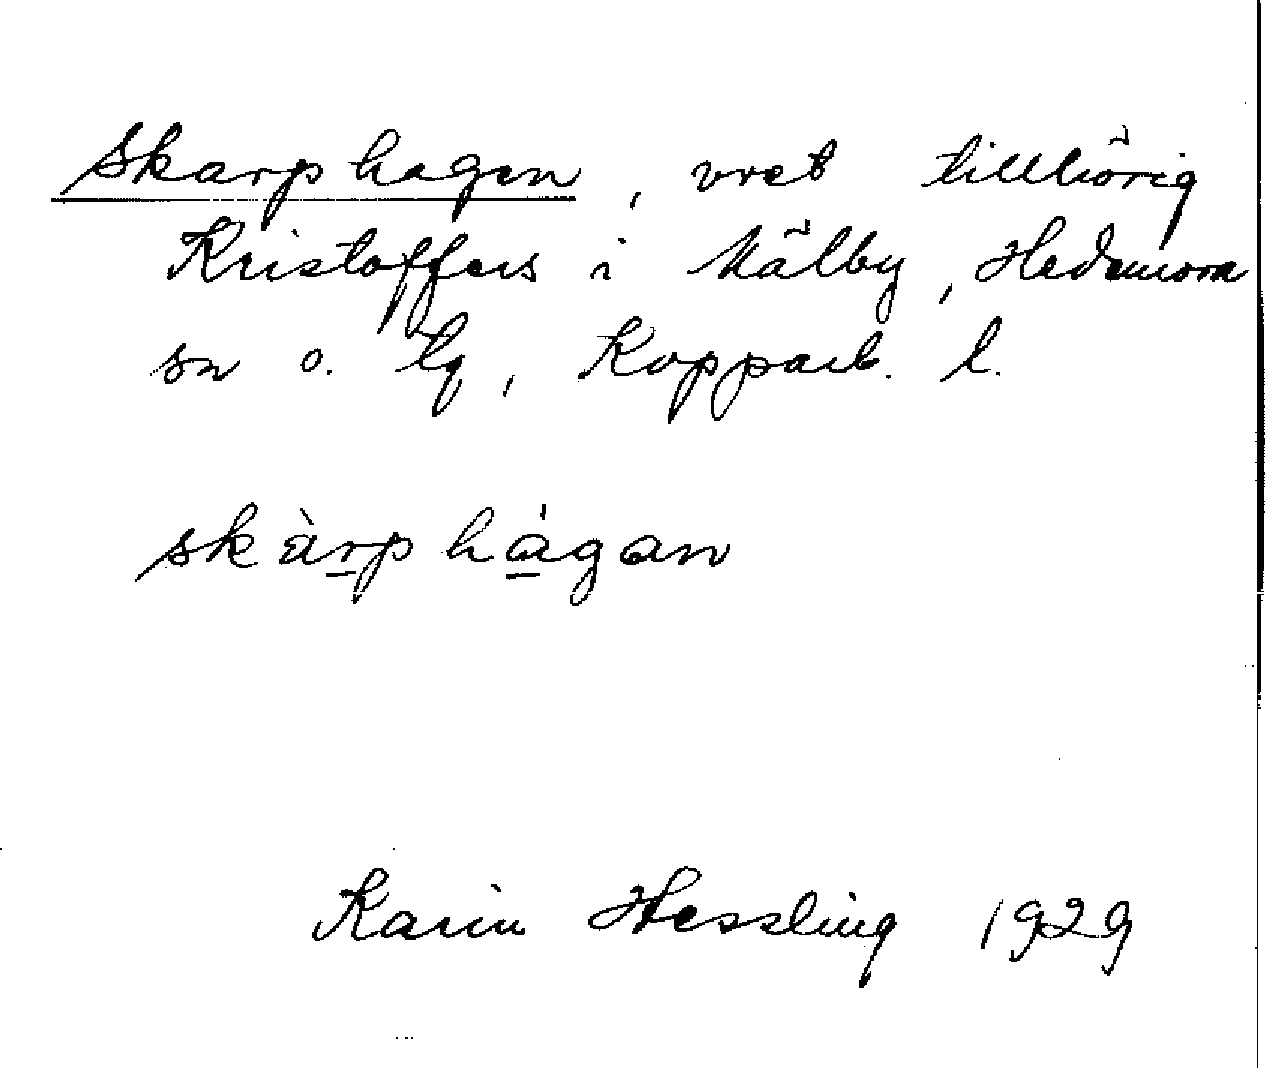 Skarphagen, vret tillhörig
Kristoffers i Mälby, Hedemora
sn o. tg, Kopparb. l.
skàrphágan
Karin Hessling 1929